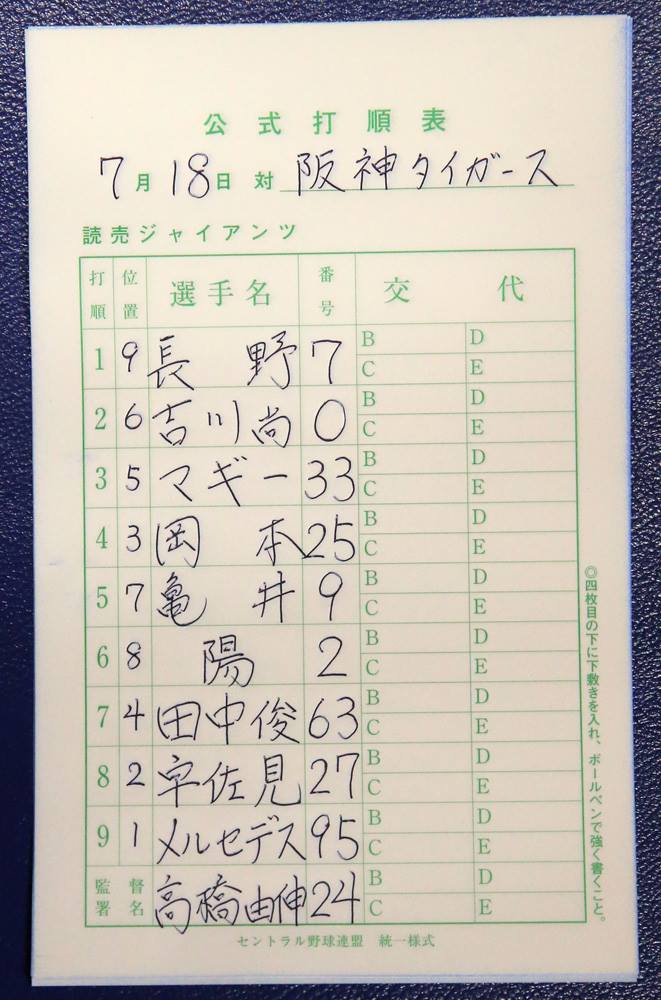 公式打順表
7月18日 対 阪神タイガース
読売ジャイアンツ
打順 位置 選手名 番号 交代
1 9 長野 7 B D C E
2 6 吉川尚 0 B D C E
3 5 マギー 33 B D C E
4 3 岡本 25 B D C E
5 7 亀井 9 B D C E
6 8 陽 2 B D C E
7 4 田中俊 63 B D C E
8 2 宇佐見 27 B D C E
9 1 メルセデス 95 B D C E
監督署名 高橋由伸 24 B D C E
セントラル野球連盟 統一様式
◎四枚目の下に下敷きを入れ、ボールペンで強く書くこと。